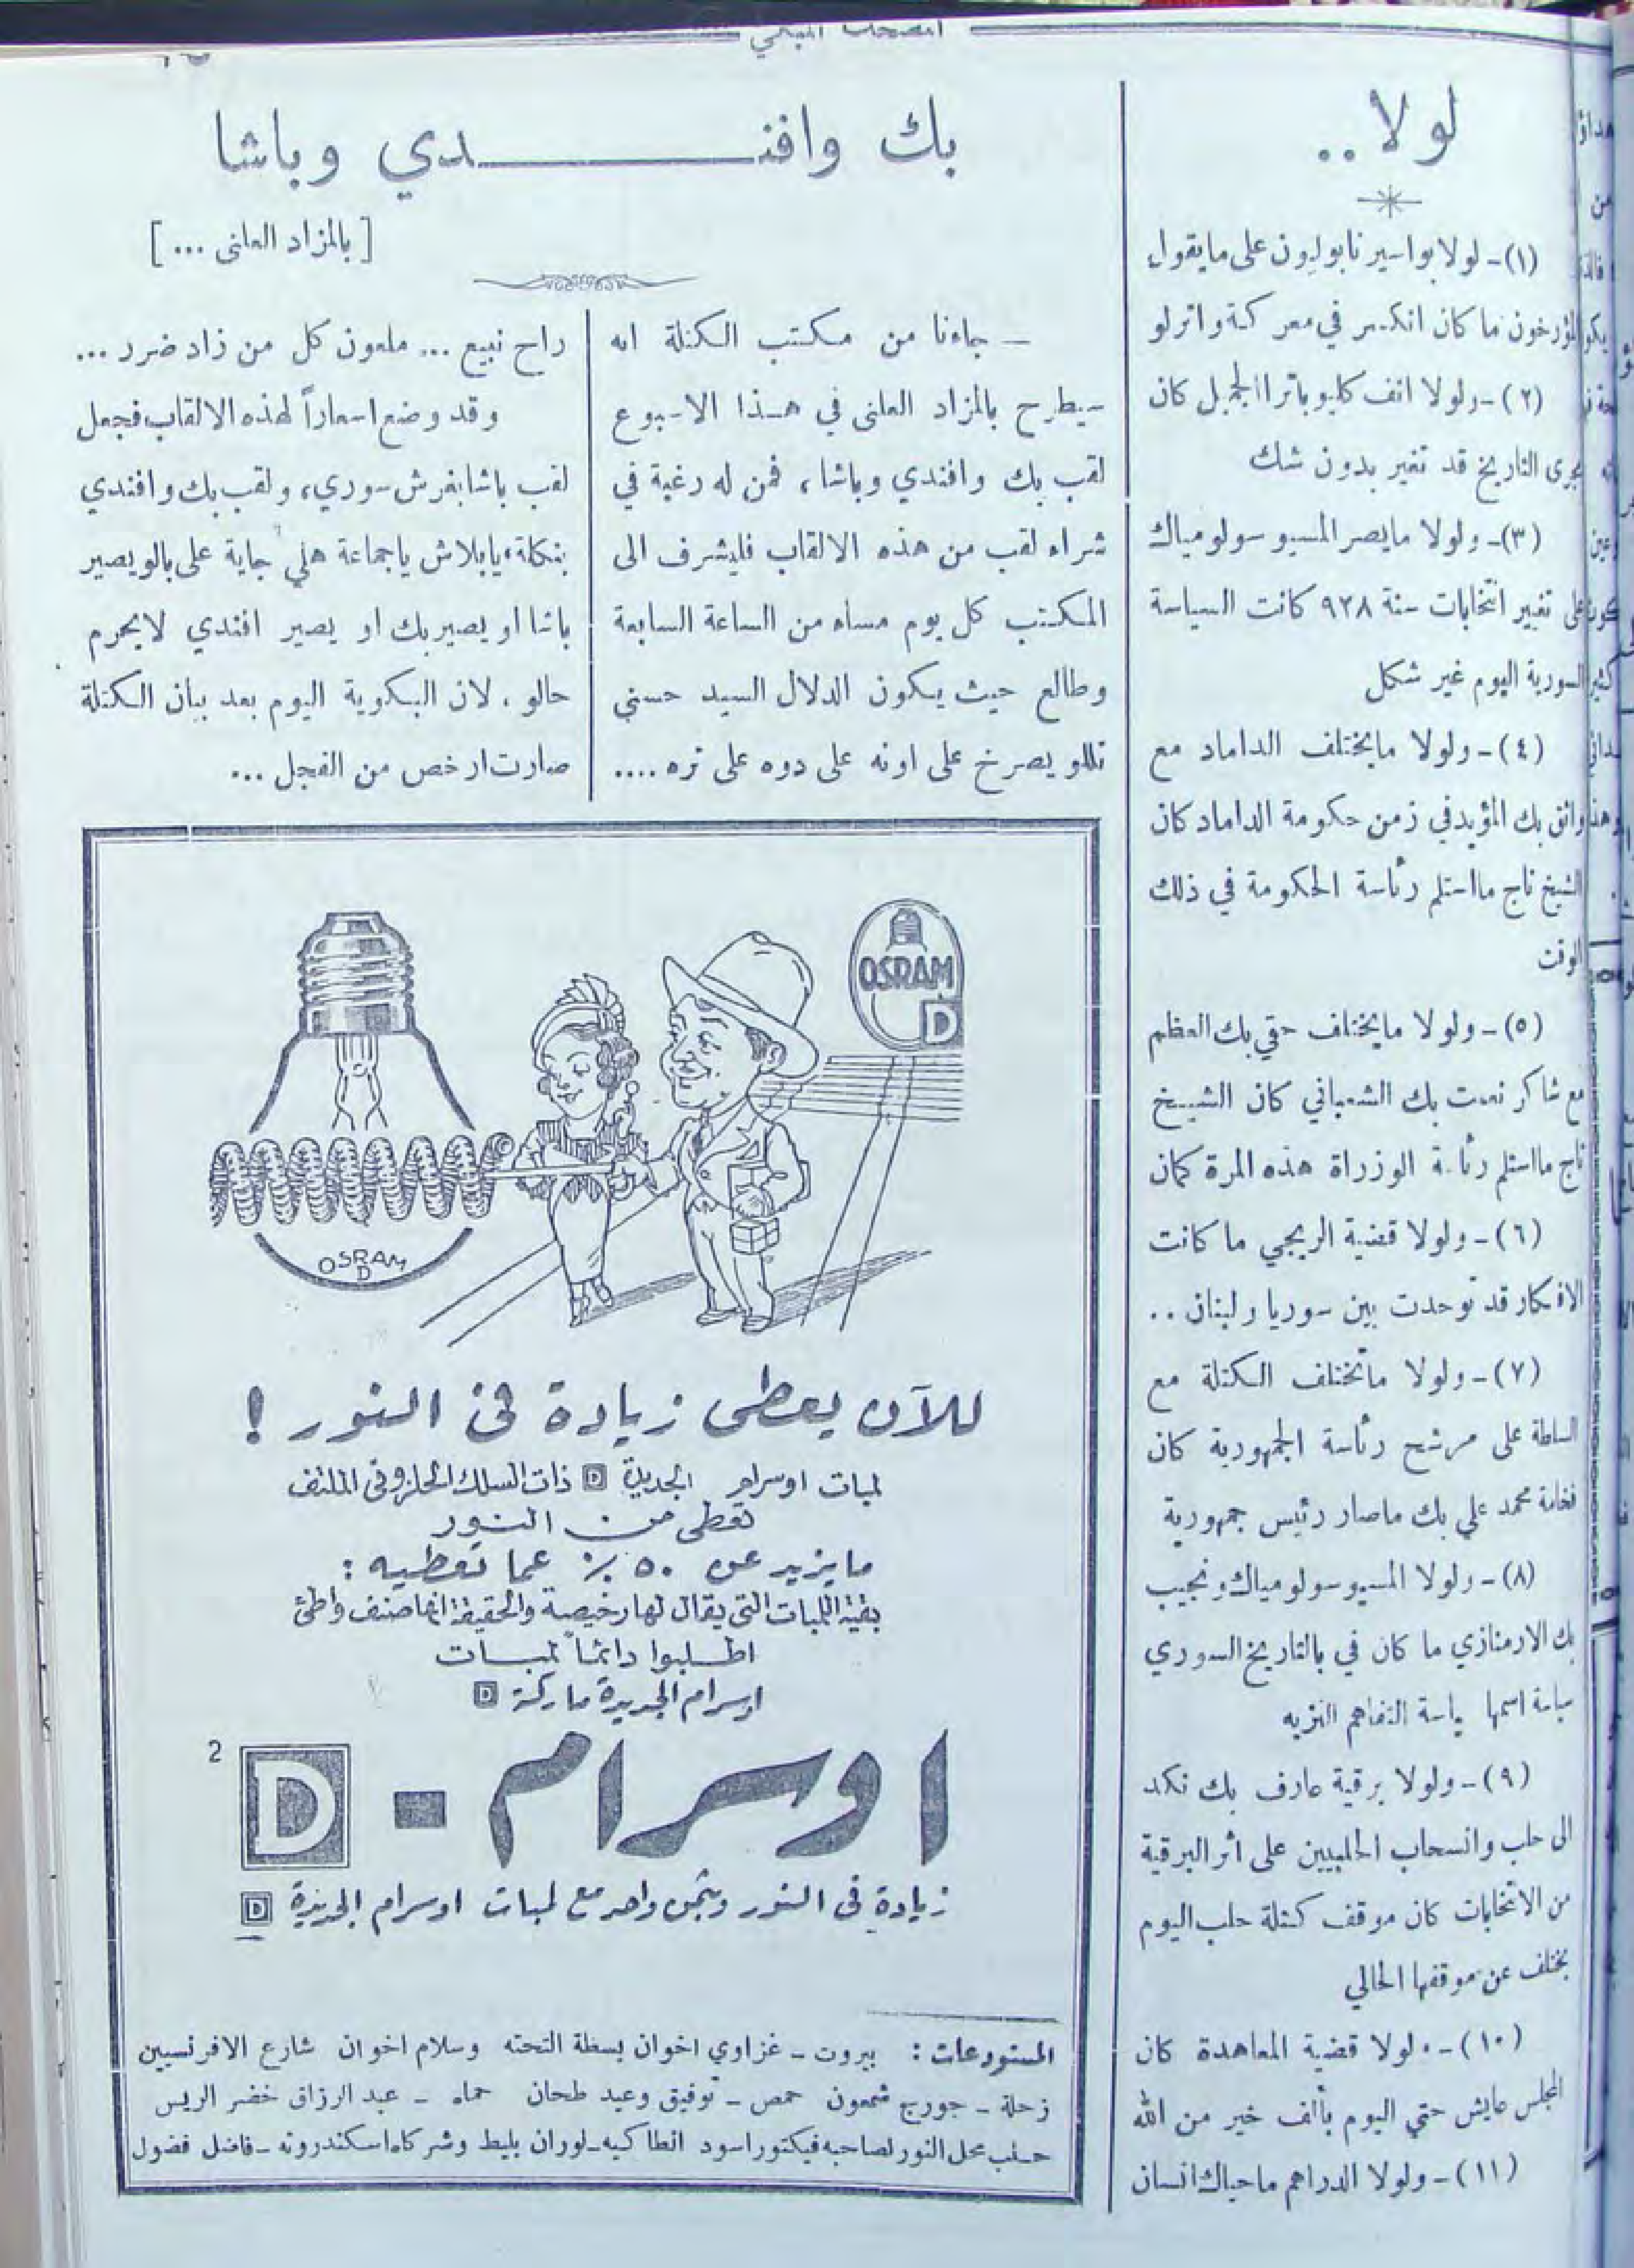 المضحك المبكي
لولا ..
(١) - لولا بواسير نابوليون على ما يقول
المؤرخون ما كان انكسر في معركة واترلو
(٢) - ولولا انف كليوباترا الجميل كان
مجرى التاريخ قد تغير بدون شك
(٣) - ولولا ما يصر المسيو سولومياك
على تغيير انتخابات سنة ٩٢٨ كانت السياسة
السورية اليوم غير شكل
(٤) - ولولا ما يختلف الداماد مع
واثق بك المؤيد في زمن حكومة الداماد كان
الشيخ تاج ما استلم رئاسة الحكومة في ذلك
الوقت
(٥) - ولولا ما يختلف حقي بك العظم
مع شاكر نعمت بك الشعباني كان الشيخ
تاج ما استلم رئاسة الوزراة هذه المرة كمان
(٦) - ولولا قضية الريجي ما كانت
الافكار قد توحدت بين سوريا ولبنان ..
(٧) - ولولا ما تختلف الكتلة مع
السلطة على مرشح رئاسة الجمهورية كان
فخامة محمد علي بك ما صار رئيس جمهورية
(٨) - ولولا المسيو سولومياك ونجيب
بك الارمنازي ما كان في بالتاريخ السوري
سياسة اسمها سياسة التفاهم النزيه
(٩) - ولولا برقية عارف بك نكد
الى حلب وانسحاب الحلبيين على أثر البرقية
من الانتخابات كان موقف كتلة حلب اليوم
يختلف عن موقفها الحالي
(١٠) - ولولا قضية المعاهدة كان
المجلس عايش حتى اليوم بألف خير من الله
(١١) - ولولا الدراهم ما حياك انسان
بك وافنـــدي وباشا
[ بالمزاد العلنى ... ]
— جاءنا من مكتب الكتلة انه
سيطرح بالمزاد العلنى في هذا الاسبوع
لقب بك وافندي وباشا، فمن له رغبة في
شراء لقب من هذه الالقاب فليشرف الى
المكتب كل يوم مساء من الساعة السابعة
وطالع حيث يكون الدلال السيد حسني
تللو يصرخ على اونه على دوه على تره ....
راح نبيع ... ملعون كل من زاد ضرر ...
وقد وضع اسعاراً لهذه الالقاب فجعل
لقب باشا بفرش سوري، ولقب بك وافندي
بنكلة، يا بلاش يا جماعة هلي جاية على بالو يصير
باشا او يصير بك او يصير افندي لا يحرم
حالو، لان البكوية اليوم بعد بيان الكتلة
صارت ارخص من الفجل ...
OSRAM
D
OSRAM
D
للآن يعطى زيادة فى النور !
لمبات اوسرام الجديدة D ذات السلك الحلزونى الملتف
تعطى من النور
ما يزيد عن ٥٠ ٪ عما تعطيه :
بقية اللمبات التى يقال لها رخيصة والحقيقة انها صنف واطئ
اطلبوا دائماً لمبات
اوسرام الجديدة ماركة D
اوسرام - D
2
زيادة فى النور وبثمن واحد مع لمبات اوسرام الجديدة D
المستودعات : بيروت - غزاوي اخوان بسطة التحته وسلام اخوان شارع الافرنسيين
زحلة - جورج شمعون حمص - توفيق وعيد طحان حماه - عبد الرزاق خضر الريس
حلب محل النور لصاحبه فيكتور اسود انطاكيه - لوران بليط وشركاه اسكندرونه - فاضل فضول